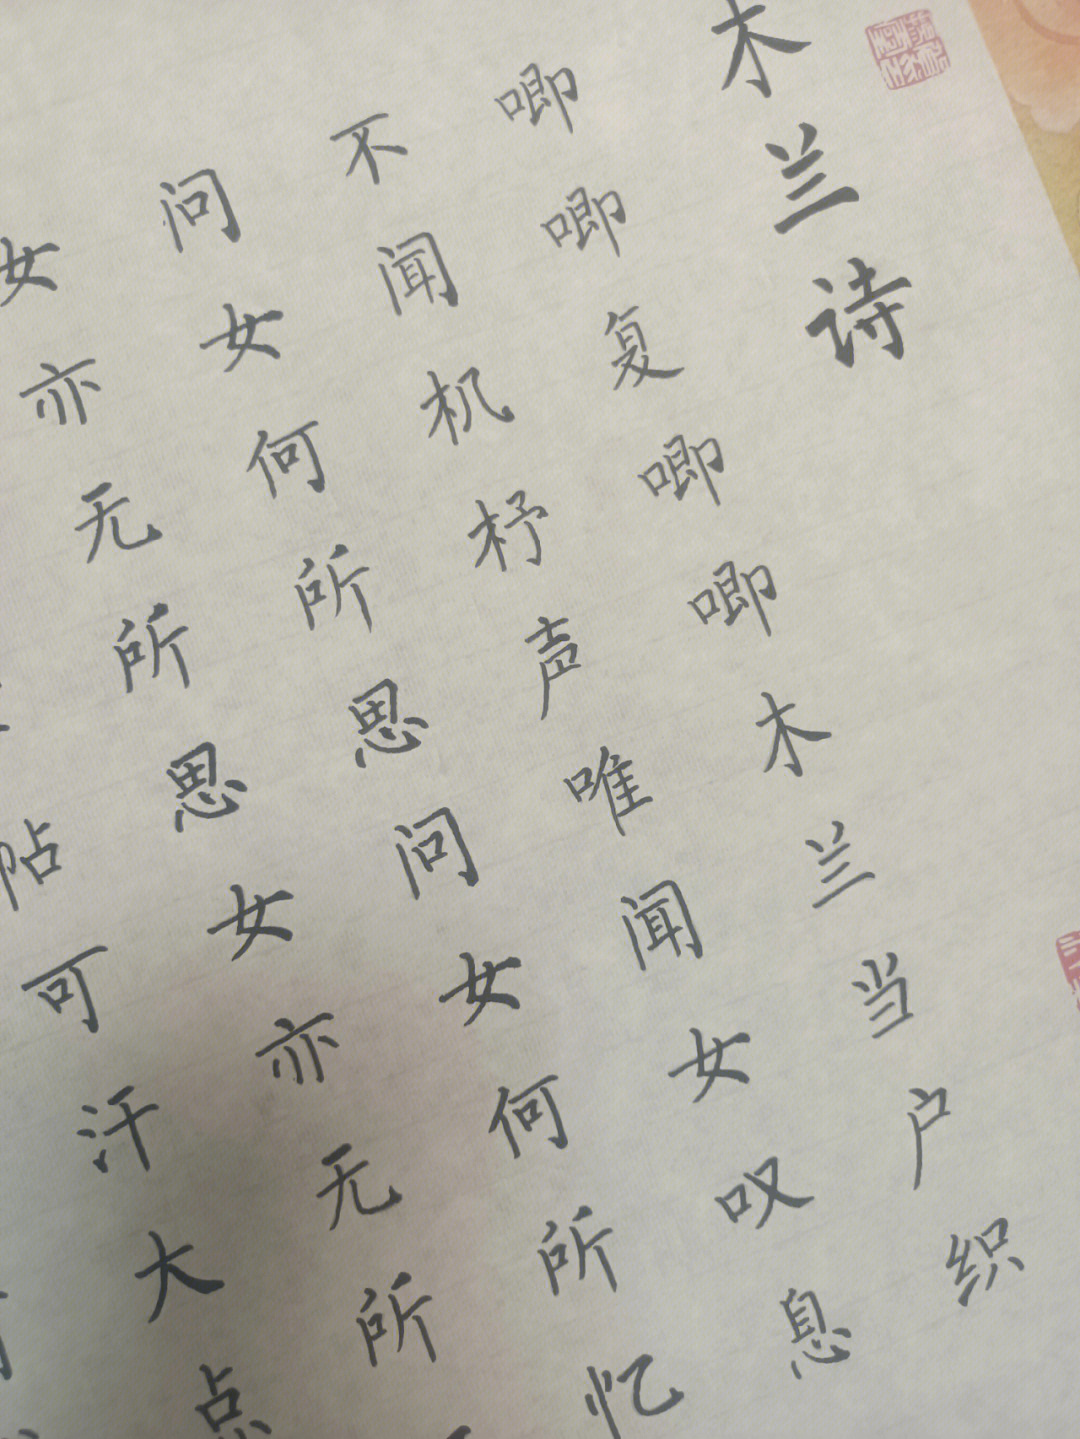 木兰诗
唧唧复唧唧木兰当户织
不闻机杼声唯闻女叹息
问女何所思问女何所忆
女亦无所思女亦无所
帖可汗大点